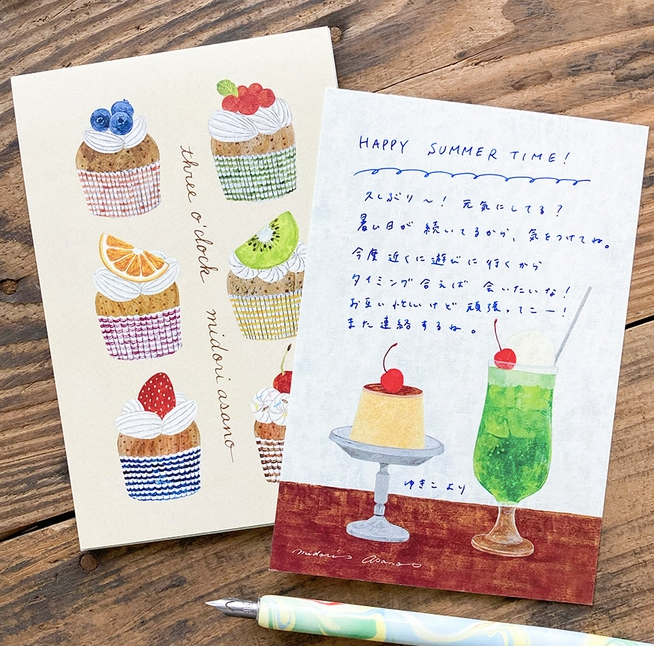 three o'clock midori asano
HAPPY SUMMER TIME!
久しぶり〜! 元気にしてる?
暑い日が続いてるから、気をつけてね。
今度近くに遊びに行くから
タイミング合えば会いたいな!
お互い忙しいけど頑張ってこー!
また連絡するね。
ゆきこより
midori asano